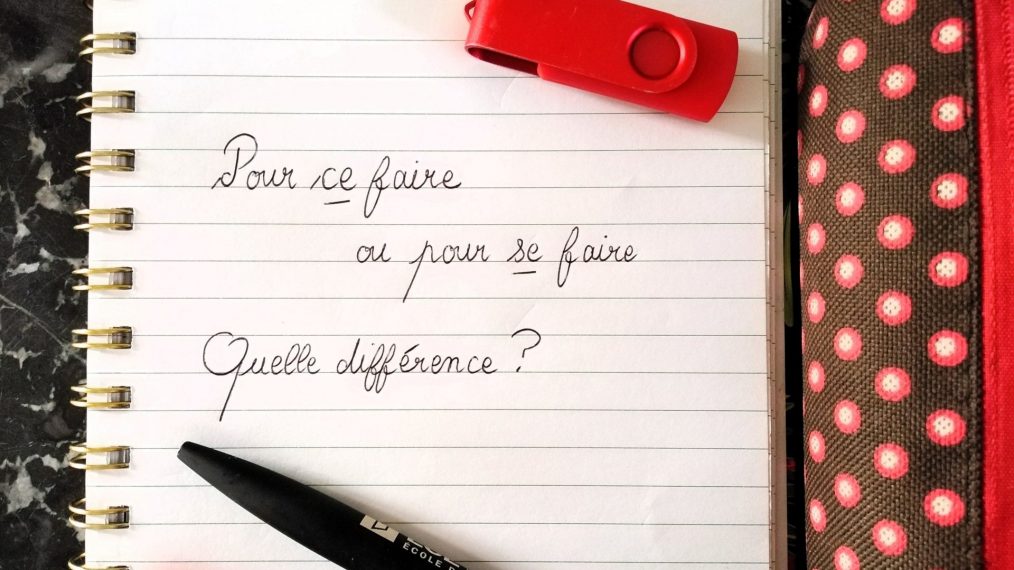 Pour ce faire
ou pour se faire
Quelle différence ?
ÉCOLE D